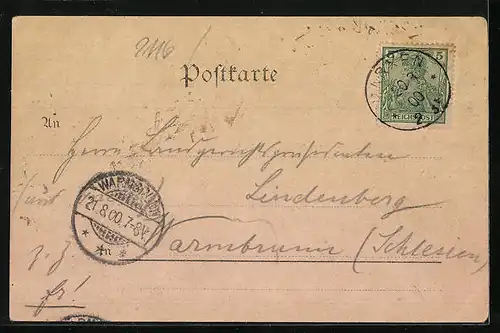 2116
5
REICHSPOST
Postkarte
An
Herrn Landgerichtspräsidenten
Lindenberg
Warmbrunn (Schlesien)
21.8.00. 7-8V.
z. Z.
fr!